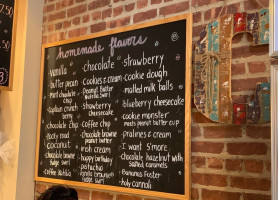 homemade flavors
- Vanilla
- butter pecan
- Mint chocolate chip
- captain crunch
- chocolate chip
- rocky road
- coconut
- chocolate brownie fudge swirl
- coffee
- chocolate
- Peanut Butter
- Cookies & cream
- Strawberry cheesecake
- Coffee chip
- Chocolate brownie peanut butter
- irish cream
- happy birthday
- pistachio
- vanilla brownie fudge swirl
- Strawberry
- cookie dough
- malted milk balls
- blueberry cheesecake
- cookie monster meets peanut butter cup
- Pralines & cream
- I want S'more
- chocolate hazelnut with salted caramels
- Bananas Foster
- holy cannoli